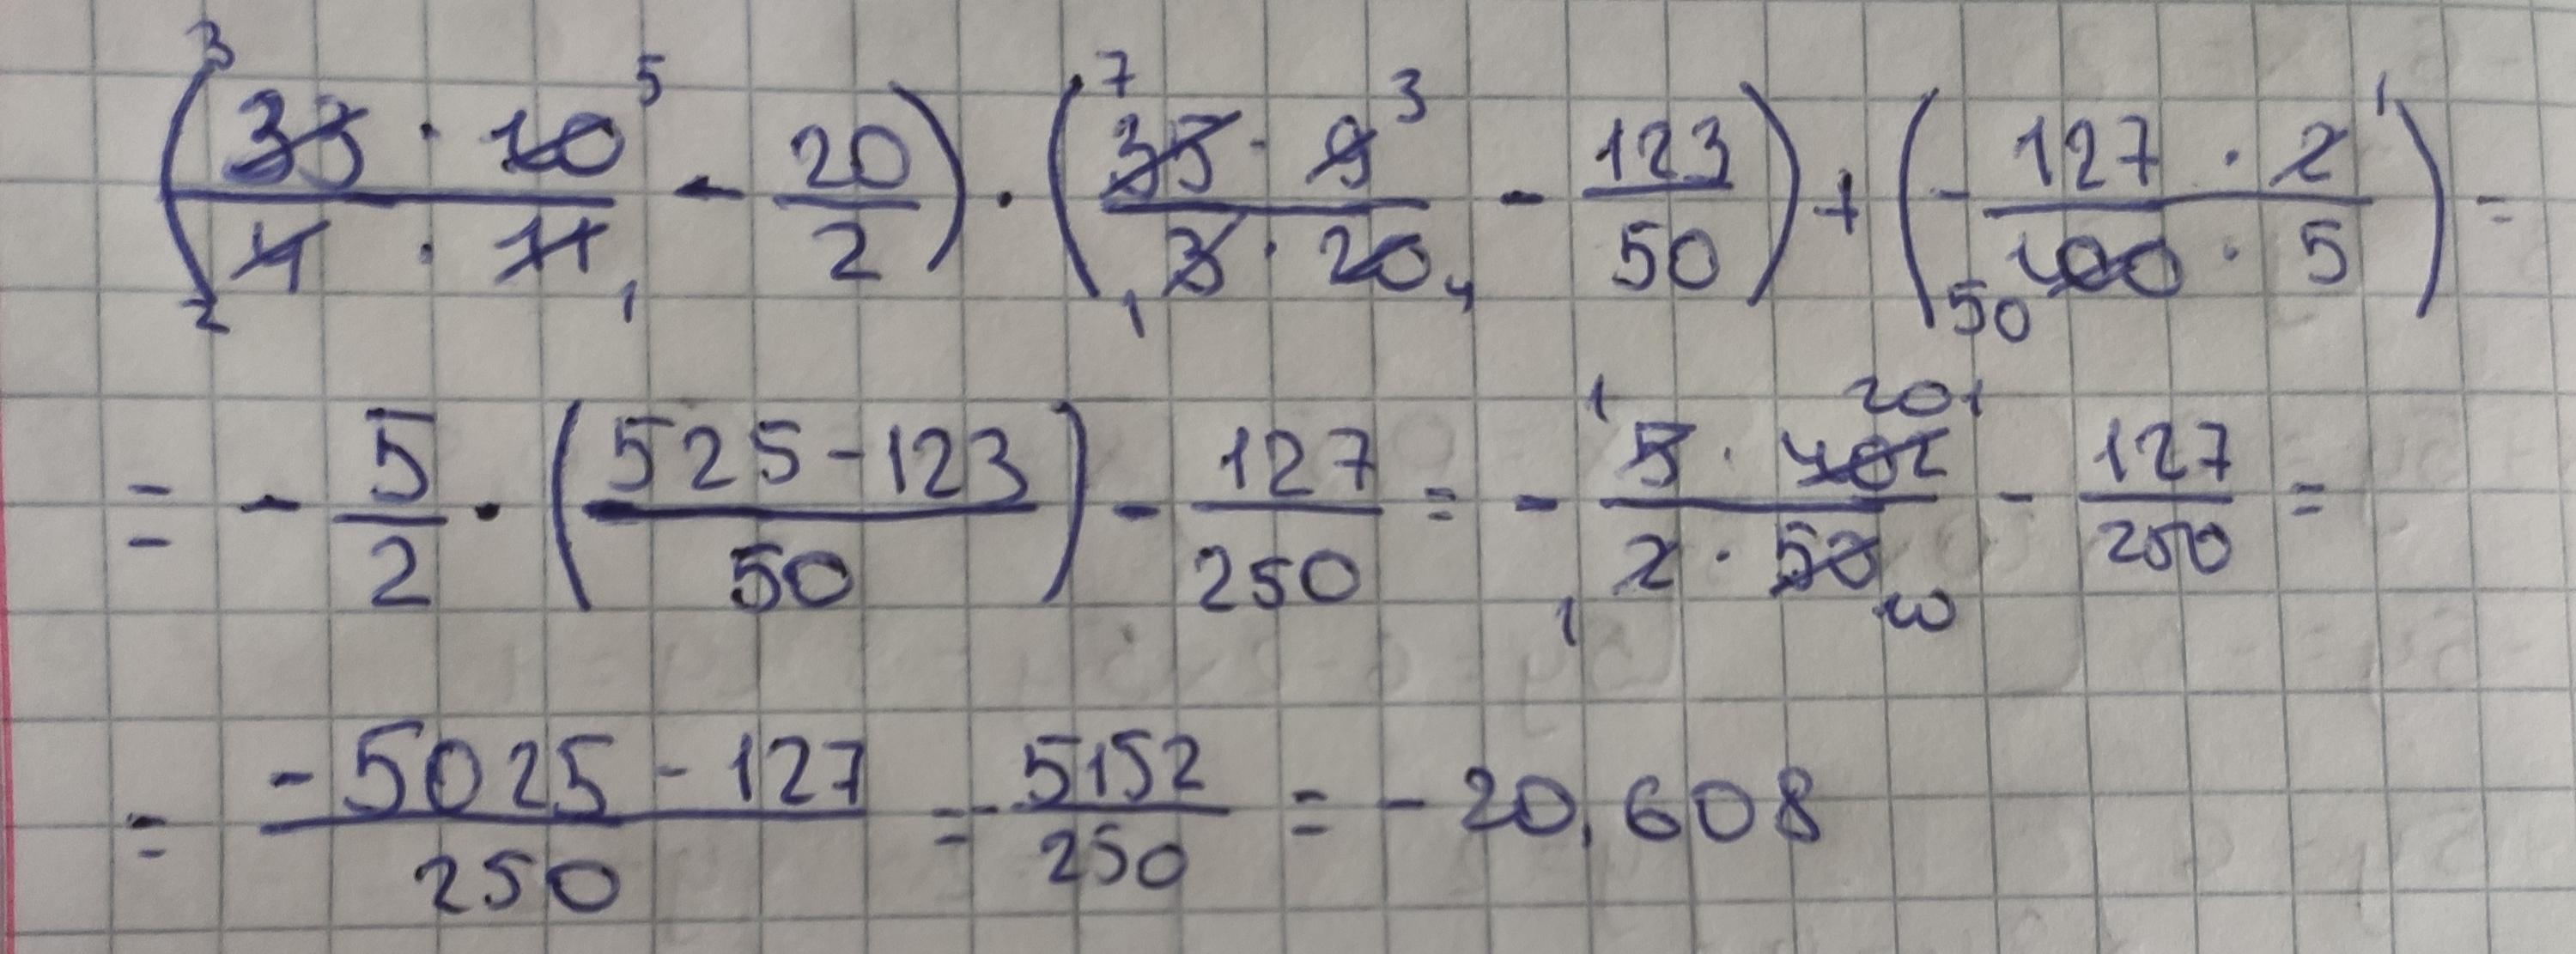 (33 · 10 / 4 · 11 - 20/2) · (35 · 9 / 3 · 20 - 123/50) + (- 127 · 2 / 100 · 5) =
= - 5/2 · (525 - 123 / 50) - 127/250 = - 5 · 402 / 2 · 50 - 127/250 =
= -5025 - 127 / 250 = - 5152/250 = - 20,608